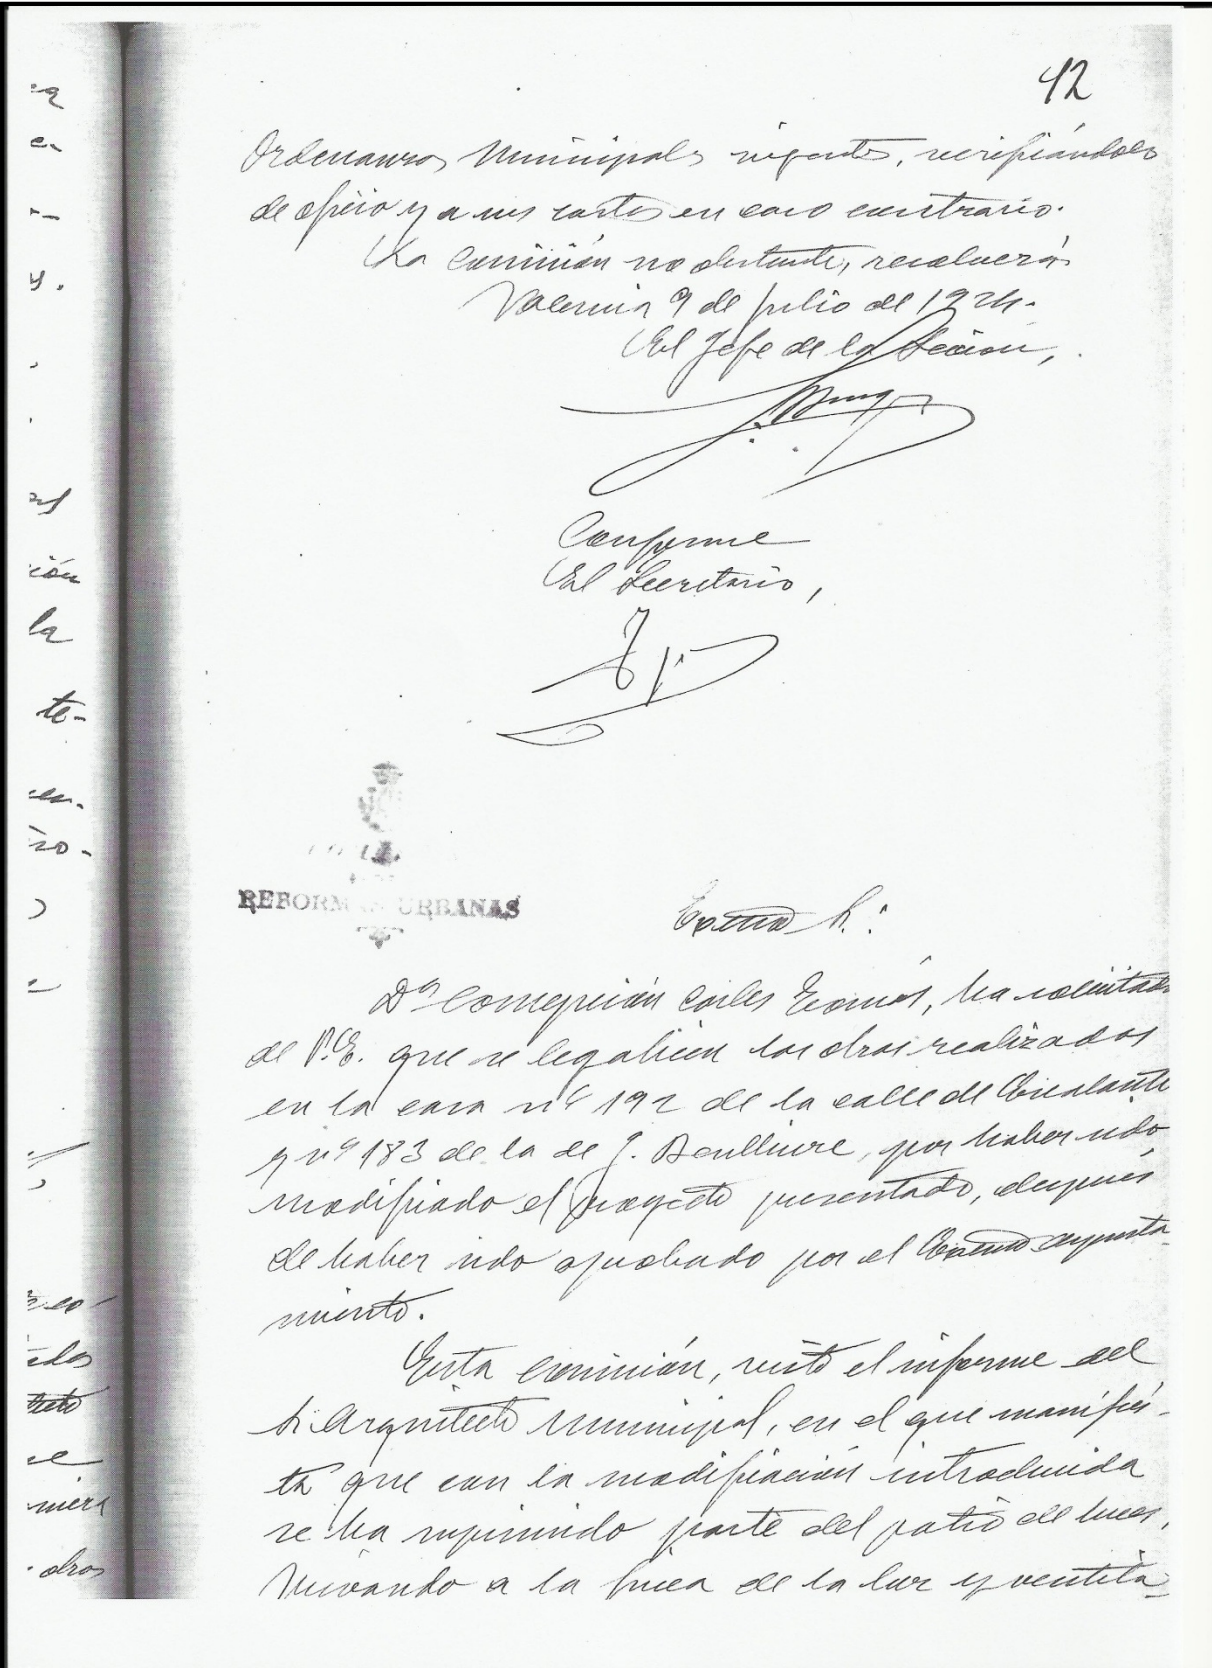 42
Ordenanzas Municipales vigentes, verificándolo
de oficio y a sus costas en caso contrario.
La Comisión no obstante, resolverá
Valencia 9 de Julio de 1924.
El Jefe de la Sección,
Conforme
El Secretario,
REFORMAS URBANAS
Excmo Sr.:
Dª Concepción Carles Tomás, ha solicitado
de V.E. que se legalicen las obras realizadas
en la casa nº 192 de la calle de Escalante
y nº 183 de la de J. Benlliure, por haber sido
modificado el proyecto presentado, después
de haber sido aprobado por el Excmo Ayunta
miento.
Esta Comisión, visto el informe del
Sr. Arquitecto Municipal, en el que manifies-
ta que con la modificación introducida
se ha suprimido parte del patio de luces,
privando a la finca de la luz y ventila-
ión
la
te-